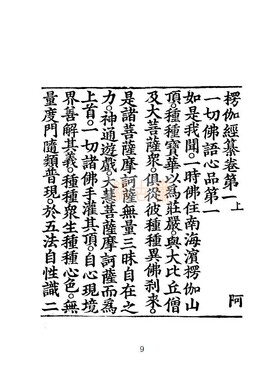 楞伽經纂卷第一上 阿
一切佛語心品第一
如是我聞。一時佛住南海濱楞伽山
頂。種種寶華以為莊嚴。與大比丘僧
及大菩薩眾俱。從彼種種異佛剎來。
是諸菩薩摩訶薩。無量三昧自在之
力。神通遊戲。大慧菩薩摩訶薩而為
上首。一切諸佛手灌其頂。自心現境
界。善解其義。種種眾生種種心色。無
量度門。隨類普現。於五法自性識二
9